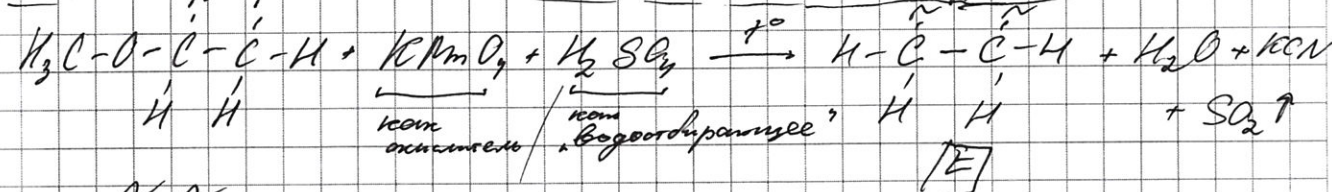 H₃C-O-C-C-H + KMnO₄ + H₂SO₄ —t°→ H-C-C-H + H₂O + KCN
H H как окислитель / как „водоотбирающее" H H + SO₂↑
E